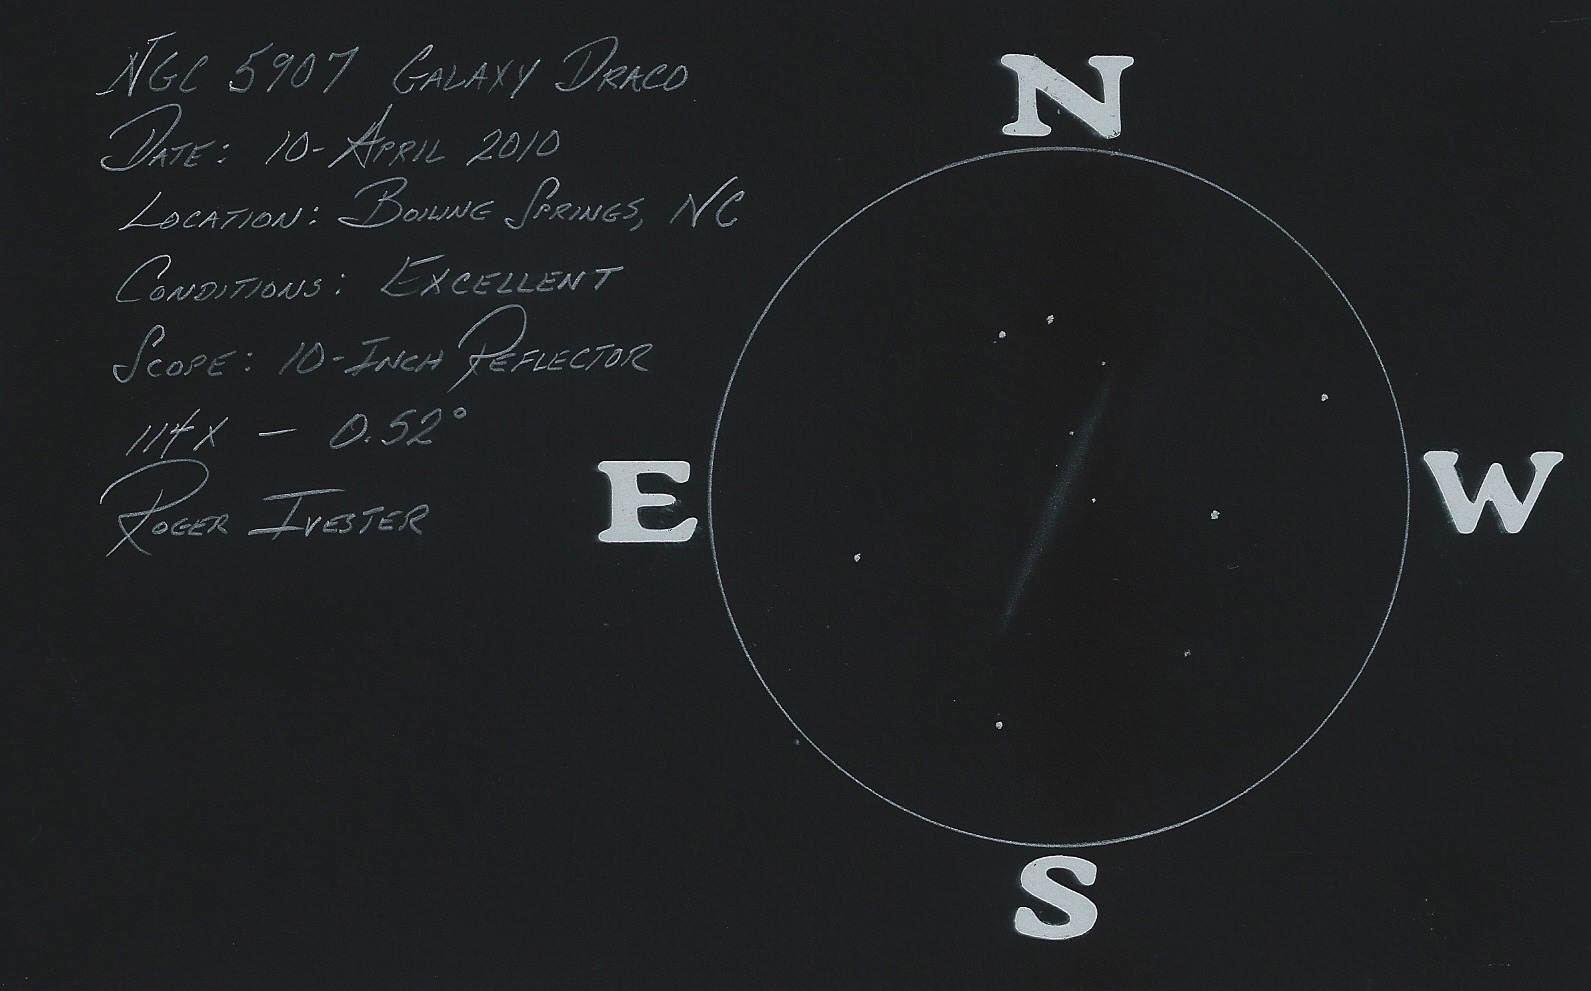 NGC 5907 GALAXY DRACO
DATE: 10-APRIL 2010
LOCATION: BOILING SPRINGS, NC
CONDITIONS: EXCELLENT
SCOPE: 10-INCH REFLECTOR
114X – 0.52°
ROGER IVESTER
N
E
W
S